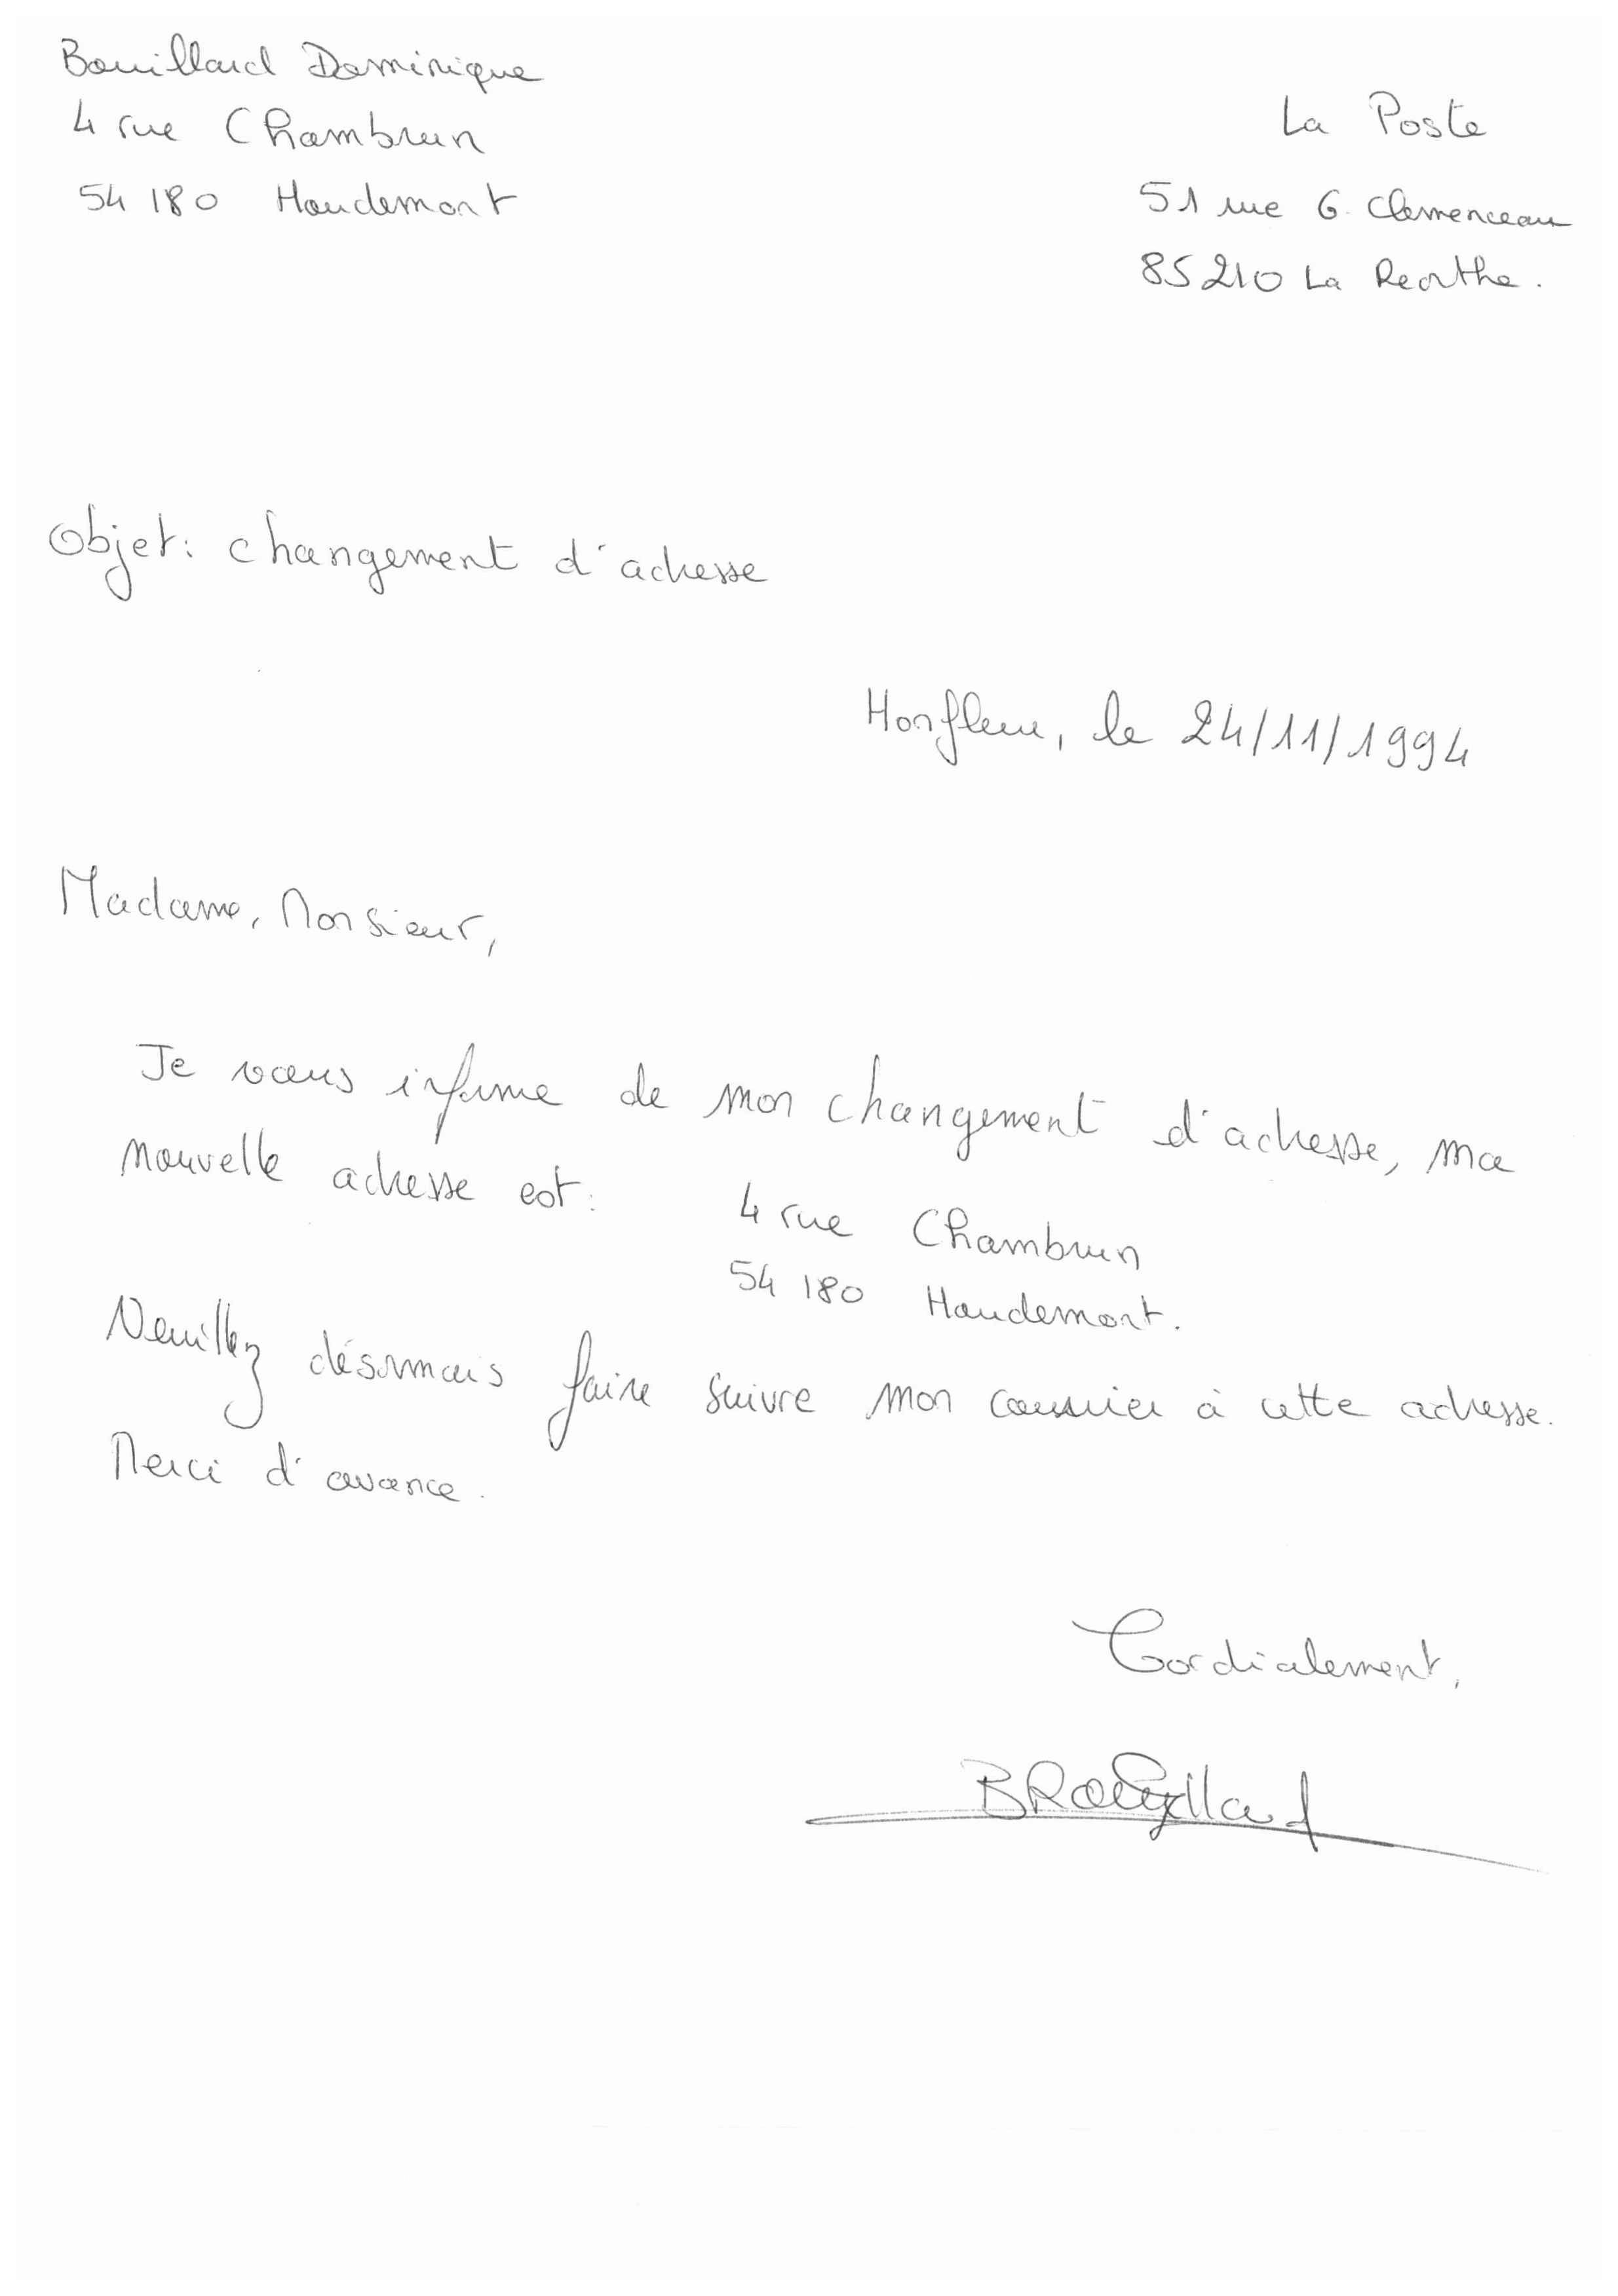 Bouillard Dominique
4 rue Chambrun
54 180 Houdemont
La Poste
51 rue G. Clemenceau
85210 La Reorthe.
Objet: changement d'adresse
Honfleur, le 24/11/1994
Madame, Monsieur,
Je vous informe de mon changement d'adresse, ma
nouvelle adresse est:
4 rue Chambrun
54 180 Houdemont.
Veuillez désormais faire suivre mon courrier à cette adresse.
Merci d'avance.
Cordialement,